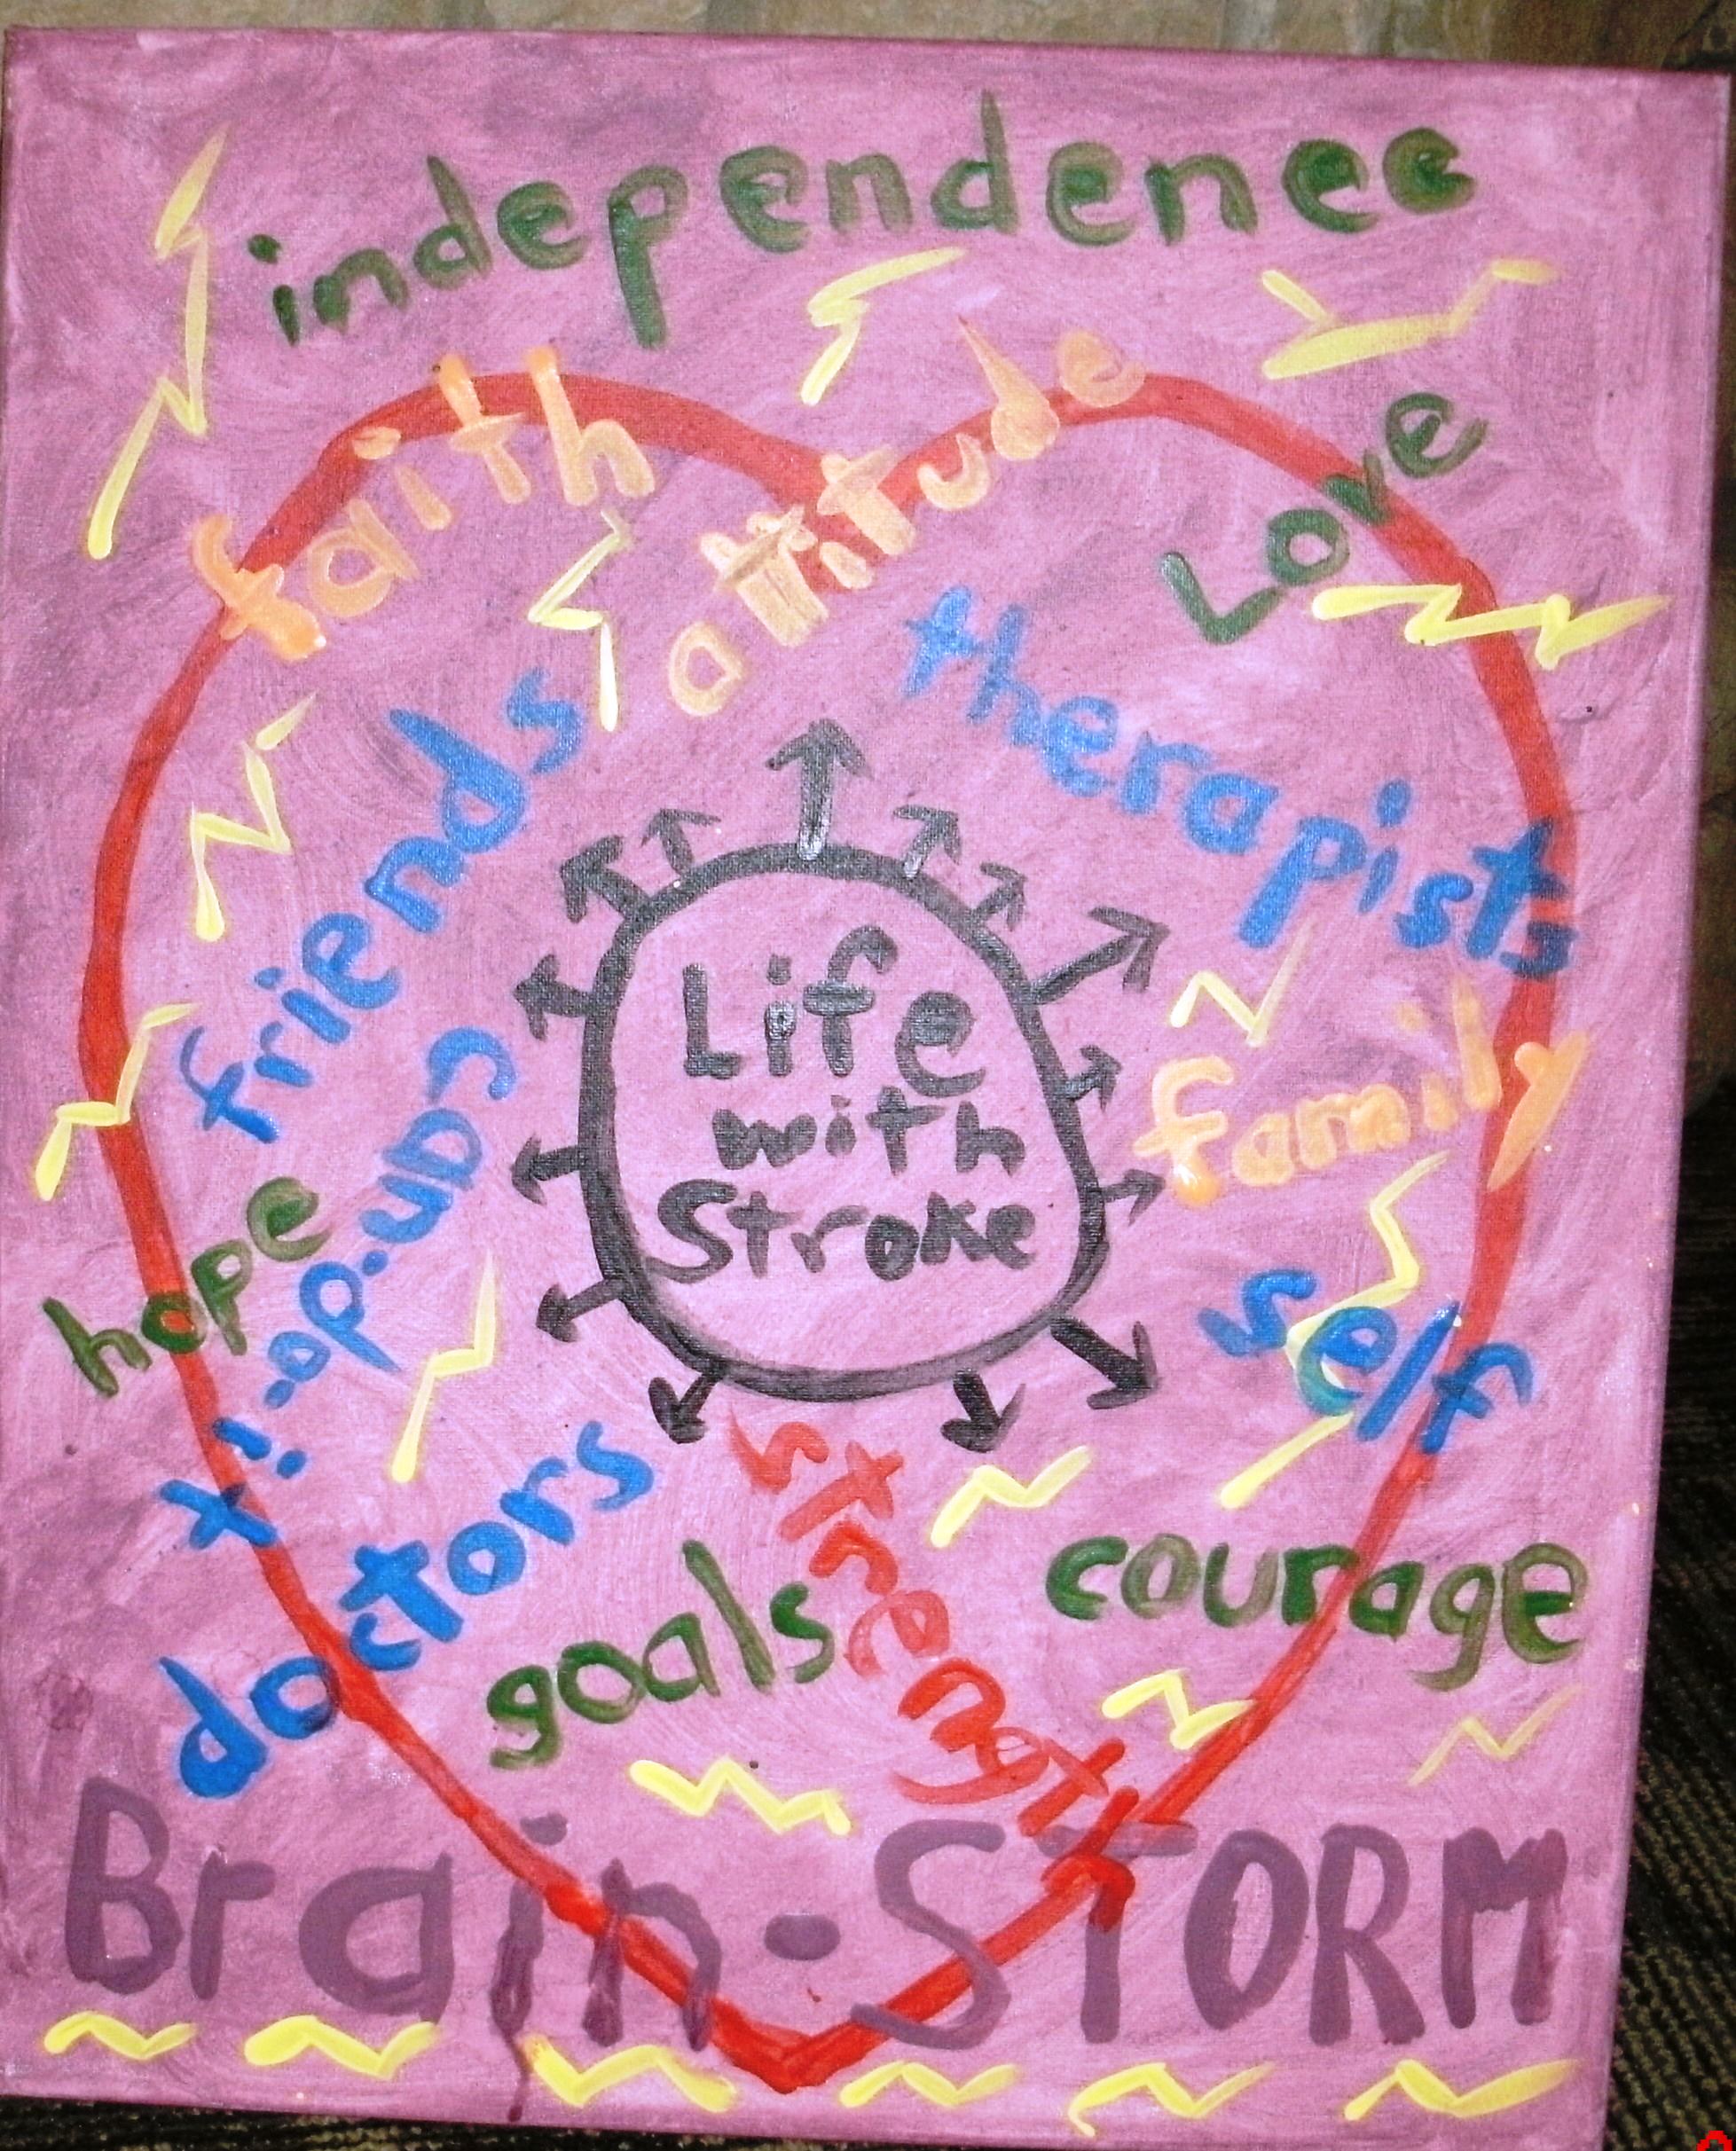 independence
faith
attitude
Love
therapists
friends
Life
with
Stroke
can-do-it
family
hope
self
doctors
strength
goals
courage
Brain-STORM